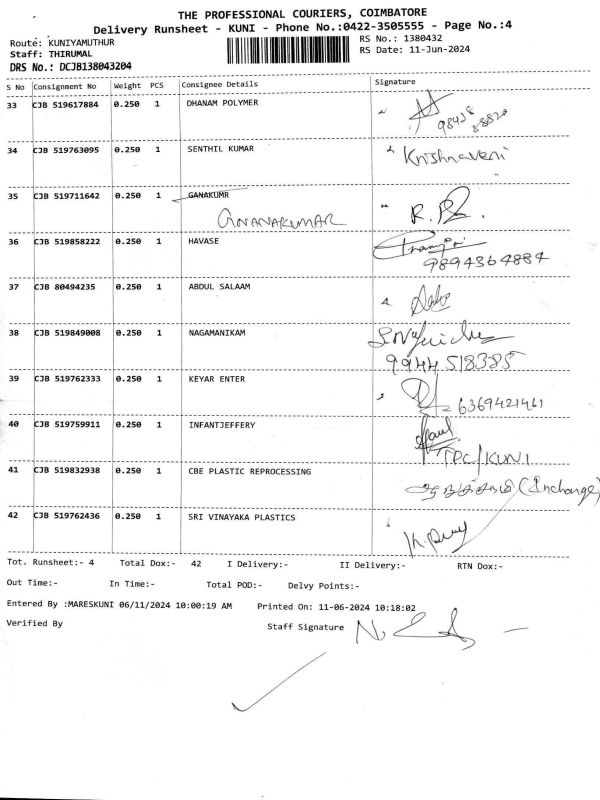 THE PROFESSIONAL COURIERS, COIMBATORE
Delivery Runsheet - KUNI - Phone No.:0422-3505555 - Page No.:4
Route: KUNIYAMUTHUR
RS No.: 1380432
Staff: THIRUMAL
RS Date: 11-Jun-2024
DRS No.: DCJB138043204
S No Consignment No Weight PCS Consignee Details Signature
33 CJB 519617884 0.250 1 DHANAM POLYMER
34 CJB 519763095 0.250 1 SENTHIL KUMAR Krishnaveni
35 CJB 519711642 0.250 1 GANAKUMR
GNANAKUMAR
36 CJB 519858222 0.250 1 HAVASE
9894364884
37 CJB 80494235 0.250 1 ABDUL SALAAM
38 CJB 519849008 0.250 1 NAGAMANIKAM
9944 518385
39 CJB 519762333 0.250 1 KEYAR ENTER
6369421461
40 CJB 519759911 0.250 1 INFANTJEFFERY
TPC/KUNI
41 CJB 519832938 0.250 1 CBE PLASTIC REPROCESSING
(Incharge)
42 CJB 519762436 0.250 1 SRI VINAYAKA PLASTICS
Tot. Runsheet:- 4 Total Dox:- 42 I Delivery:- II Delivery:- RTN Dox:-
Out Time:- In Time:- Total POD:- Delvy Points:-
Entered By :MARESKUNI 06/11/2024 10:00:19 AM Printed On: 11-06-2024 10:18:02
Verified By Staff Signature